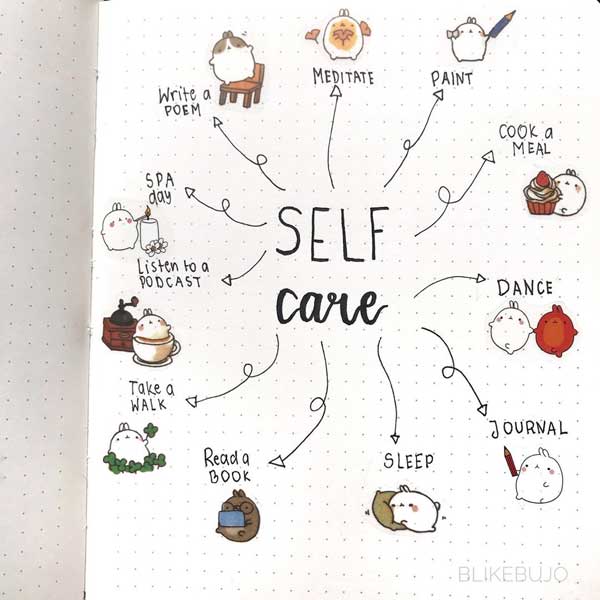 MEDITATE
PAINT
Write a
POEM
COOK a
MEAL
SPA
day
SELF
care
Listen to a
PODCAST
DANCE
Take a
WALK
JOURNAL
Read a
BOOK
SLEEP
BLIKEBUJO